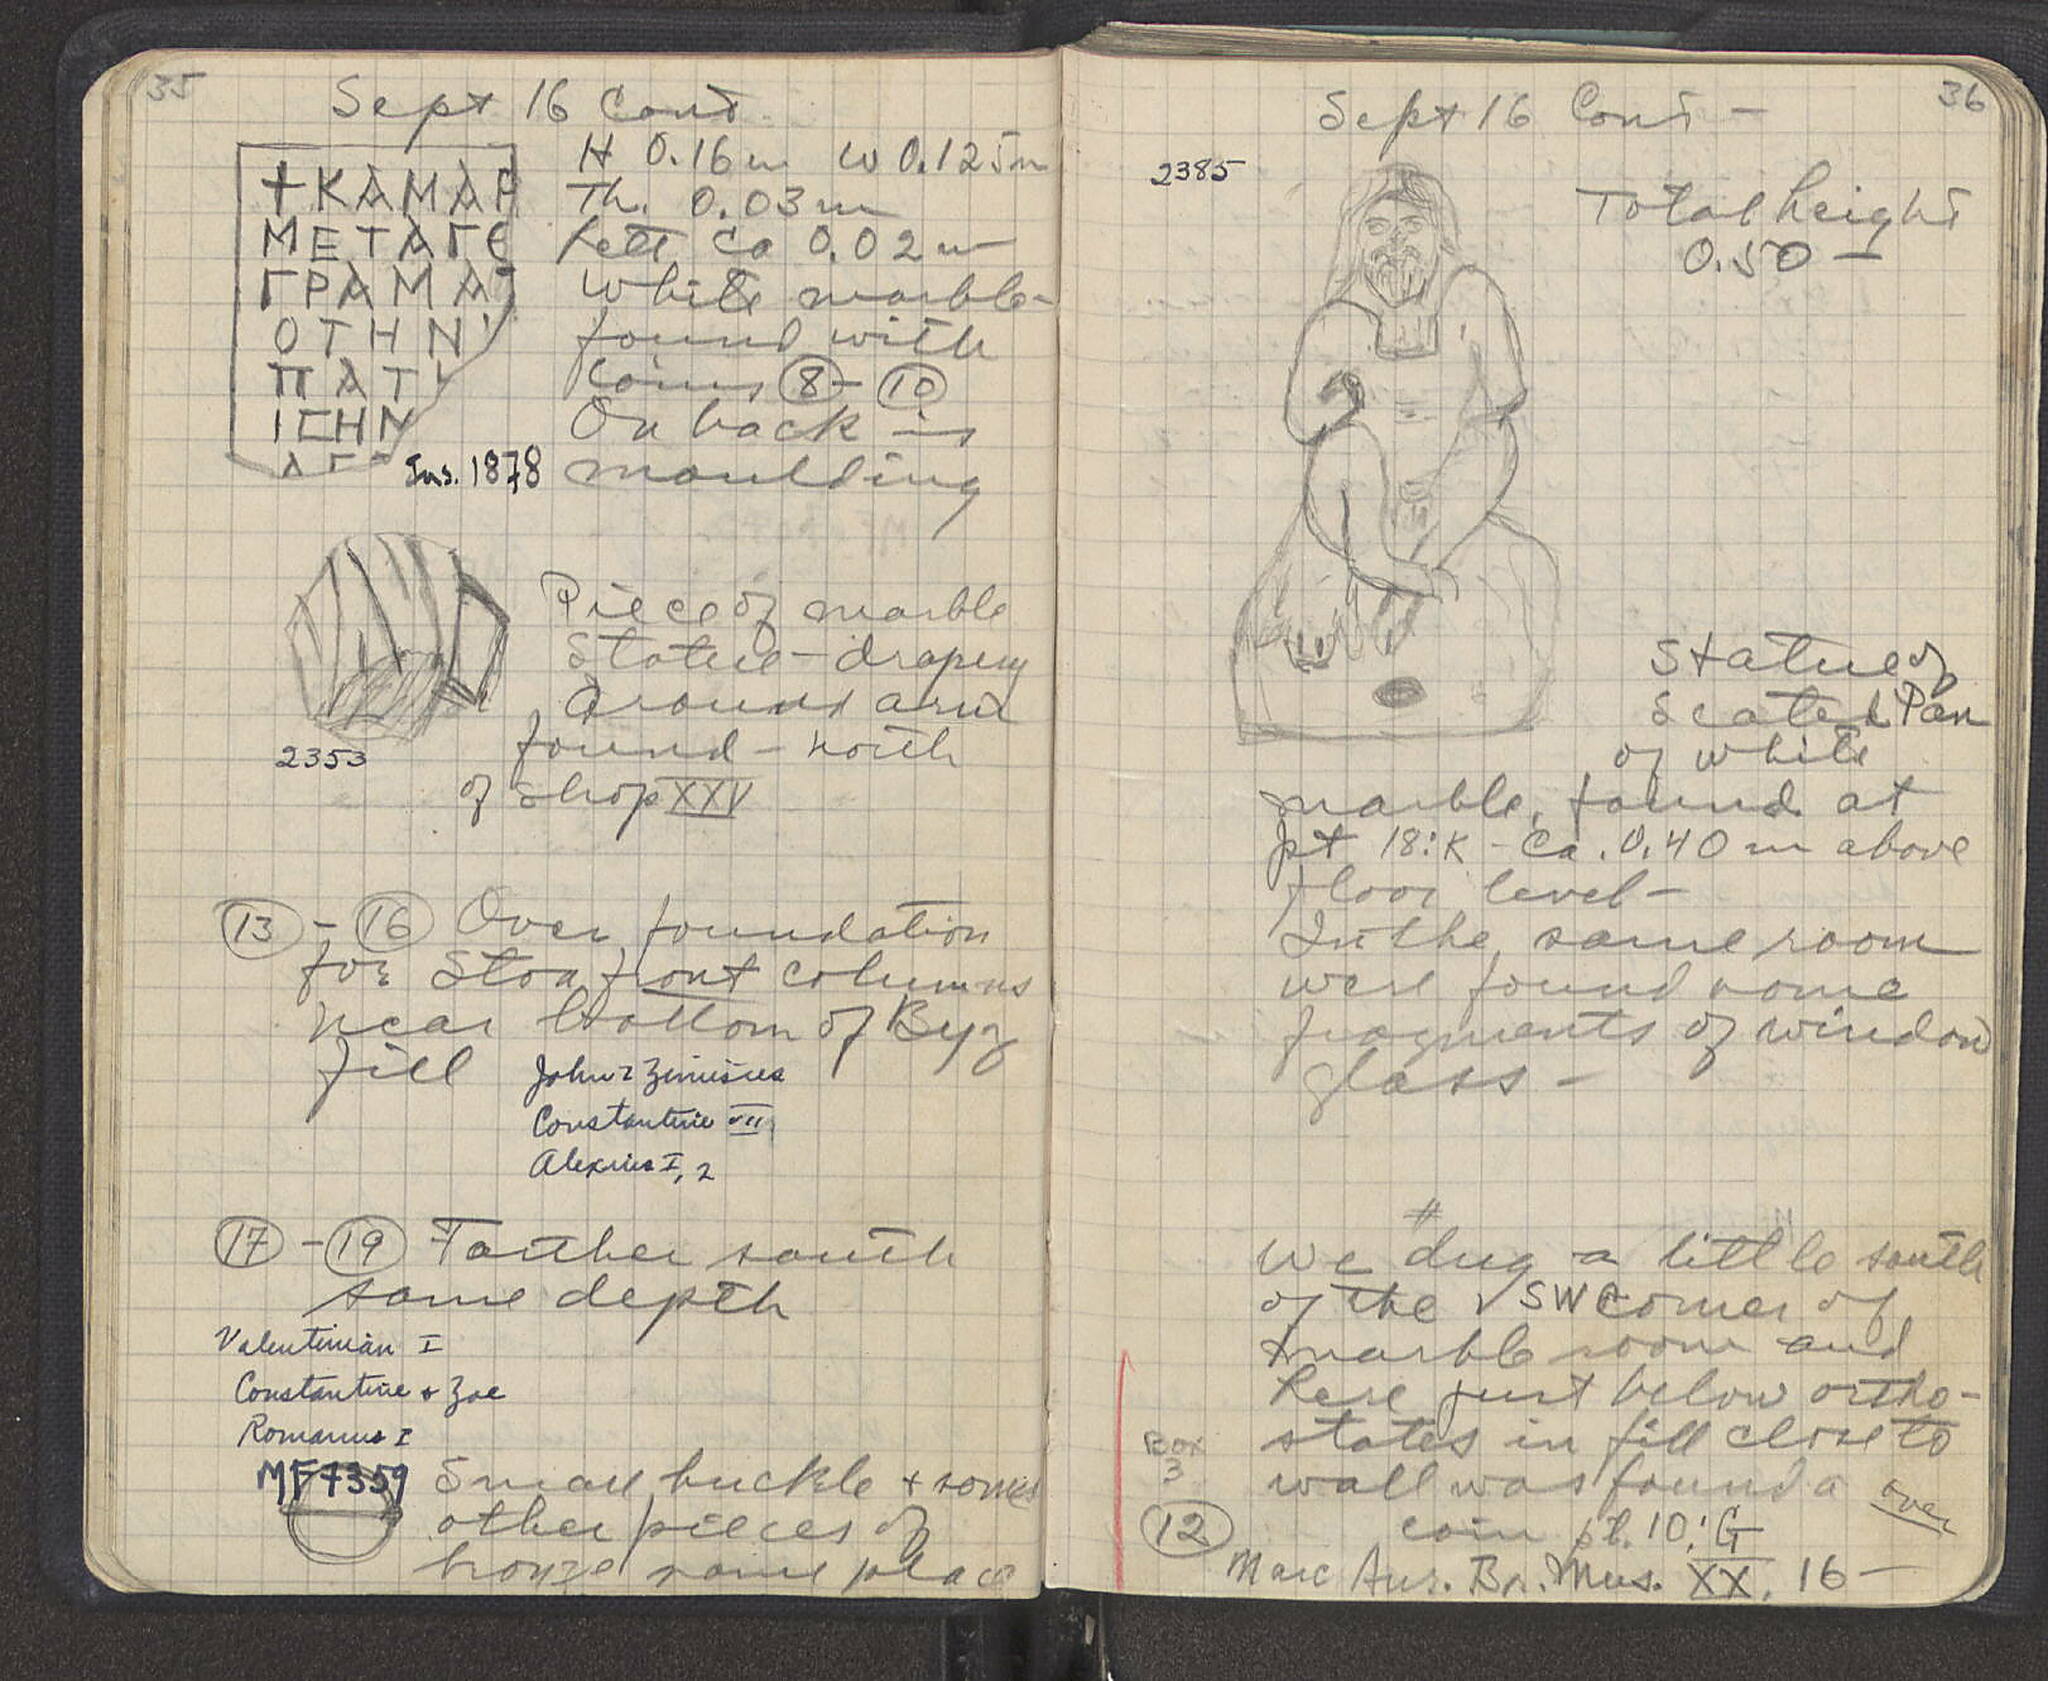 35
Sept 16 Cont
+ΚΑΜΑΡ
ΜΕΤΑΓΕ
ΓΡΑΜΑΤ
ΟΤΗΝ
ΠΑΤ
ΙΣΗΝ
ΑΓ
Ins. 1878
H 0.16m W 0.125m
Th. 0.03m
Lett ca 0.02m
White marble-
found with
Coins (8)-(10)
On back is
moulding
Piece of marble
Statue-drapery
around arm
found - north
of shop XXV
2353
(13)-(16) Over foundation
for Stoa front columns
near bottom of Byz
fill
John Zimisces
Constantine VII
Alexius I, 2
(17)-(19) Farther south
same depth
Valentinian I
Constantine & Zoe
Romanus I
MF7359
Small buckle + some
other pieces of
bronze same place
36
Sept 16 Cont-
2385
Total height
0.50-
Statue of
Seated Pan
of white
marble, found at
pt 18:K - Ca. 0.40m above
floor level-
In the same room
were found some
fragments of window
glass-
#
We dug a little south
of the √SW corner of
marble room and
here just below ortho-
states in fill close to
wall was found a
over
Box
3
(12) coin pl. 10:G
Marc Aur. Br. Mus. XX, 16-